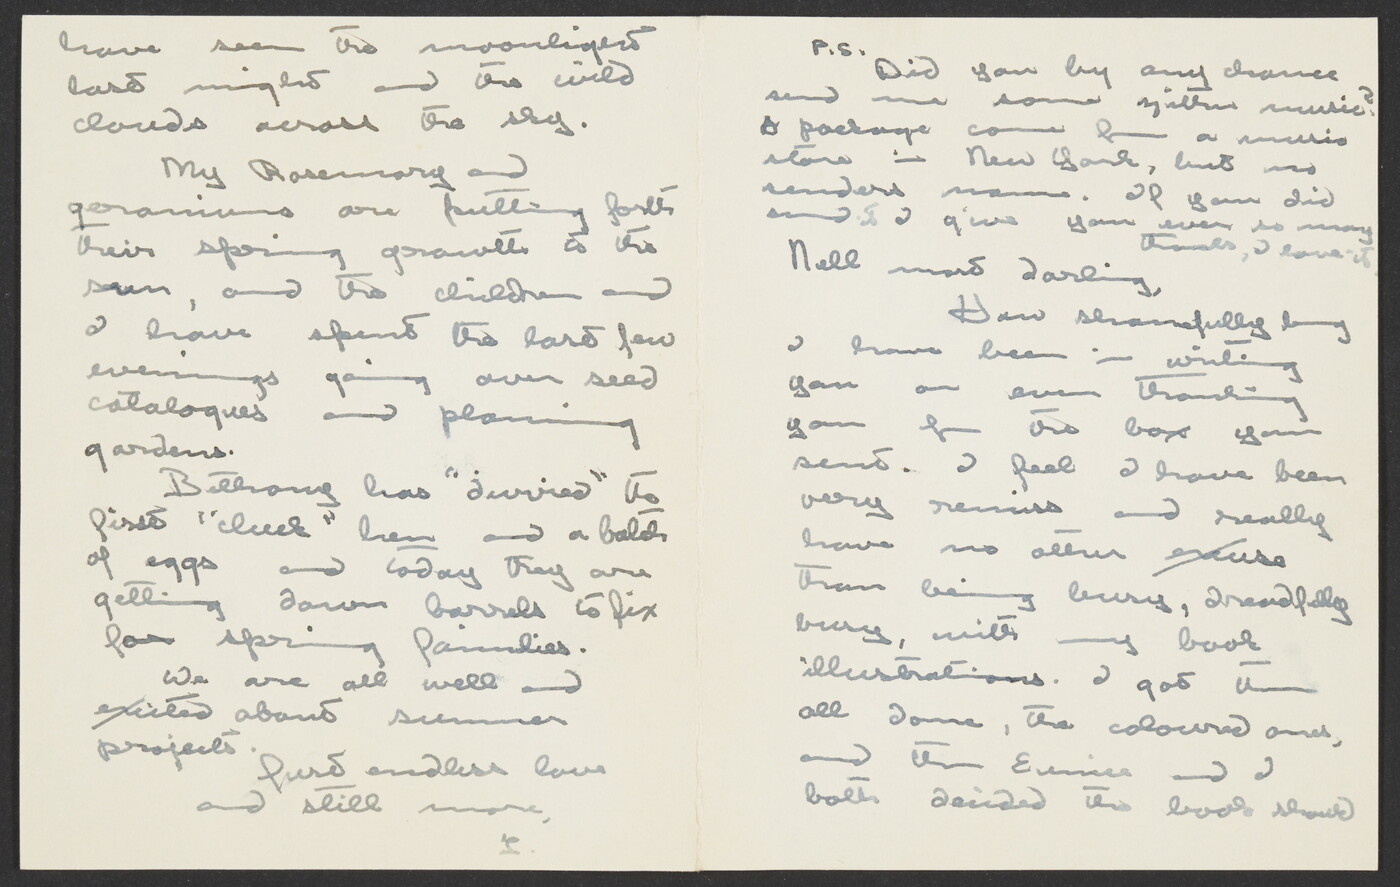 have seen the moonlight
last night and the wild
clouds across the sky.
My Rosemary and
geraniums are putting forth
their spring growth to the
sun, and the children and
I have spent the last few
evenings going over seed
catalogues and planning
gardens.
Bethany has "divvied" the
first "cluck" hen and a batch
of eggs and today they are
getting down barrels to fix
for spring families.
We are all well and
exited about summer
projects.
Just endless love
and still more,
P.S.
Did you by any chance
send me some zither music?
A package came from a music
store in New York, but no
senders name. If you did
send it I give you ever so many
thanks, I love it.
Nell most darling,
How shamefully long
I have been in writing
you or even thanking
you for the box you
sent. I feel I have been
very remiss and really
have no other excuse
than being busy, dreadfully
busy, with my book
illustrations. I got them
all done, the coloured ones,
and then Eunice and I
both decided the book should